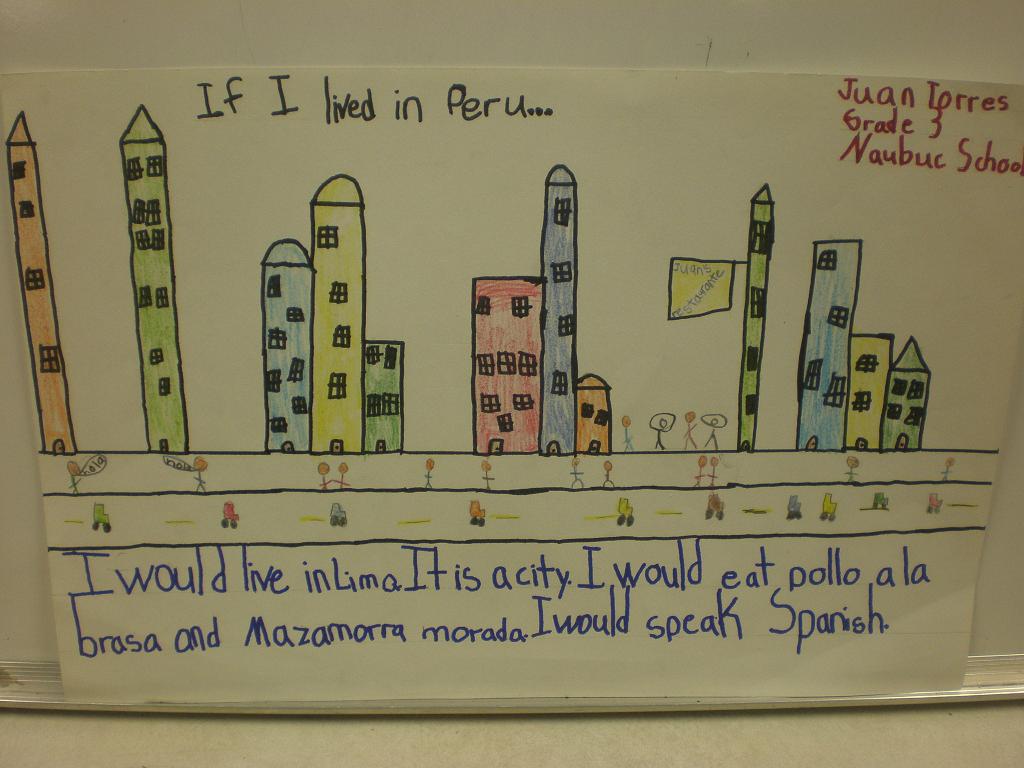 If I lived in Peru...
Juan Torres
Grade 3
Naubuc School
Juan's
restaurante
hola
hola
I would live in Lima. It is a city. I would eat pollo a la
brasa and Mazamorra morada. I would speak Spanish.